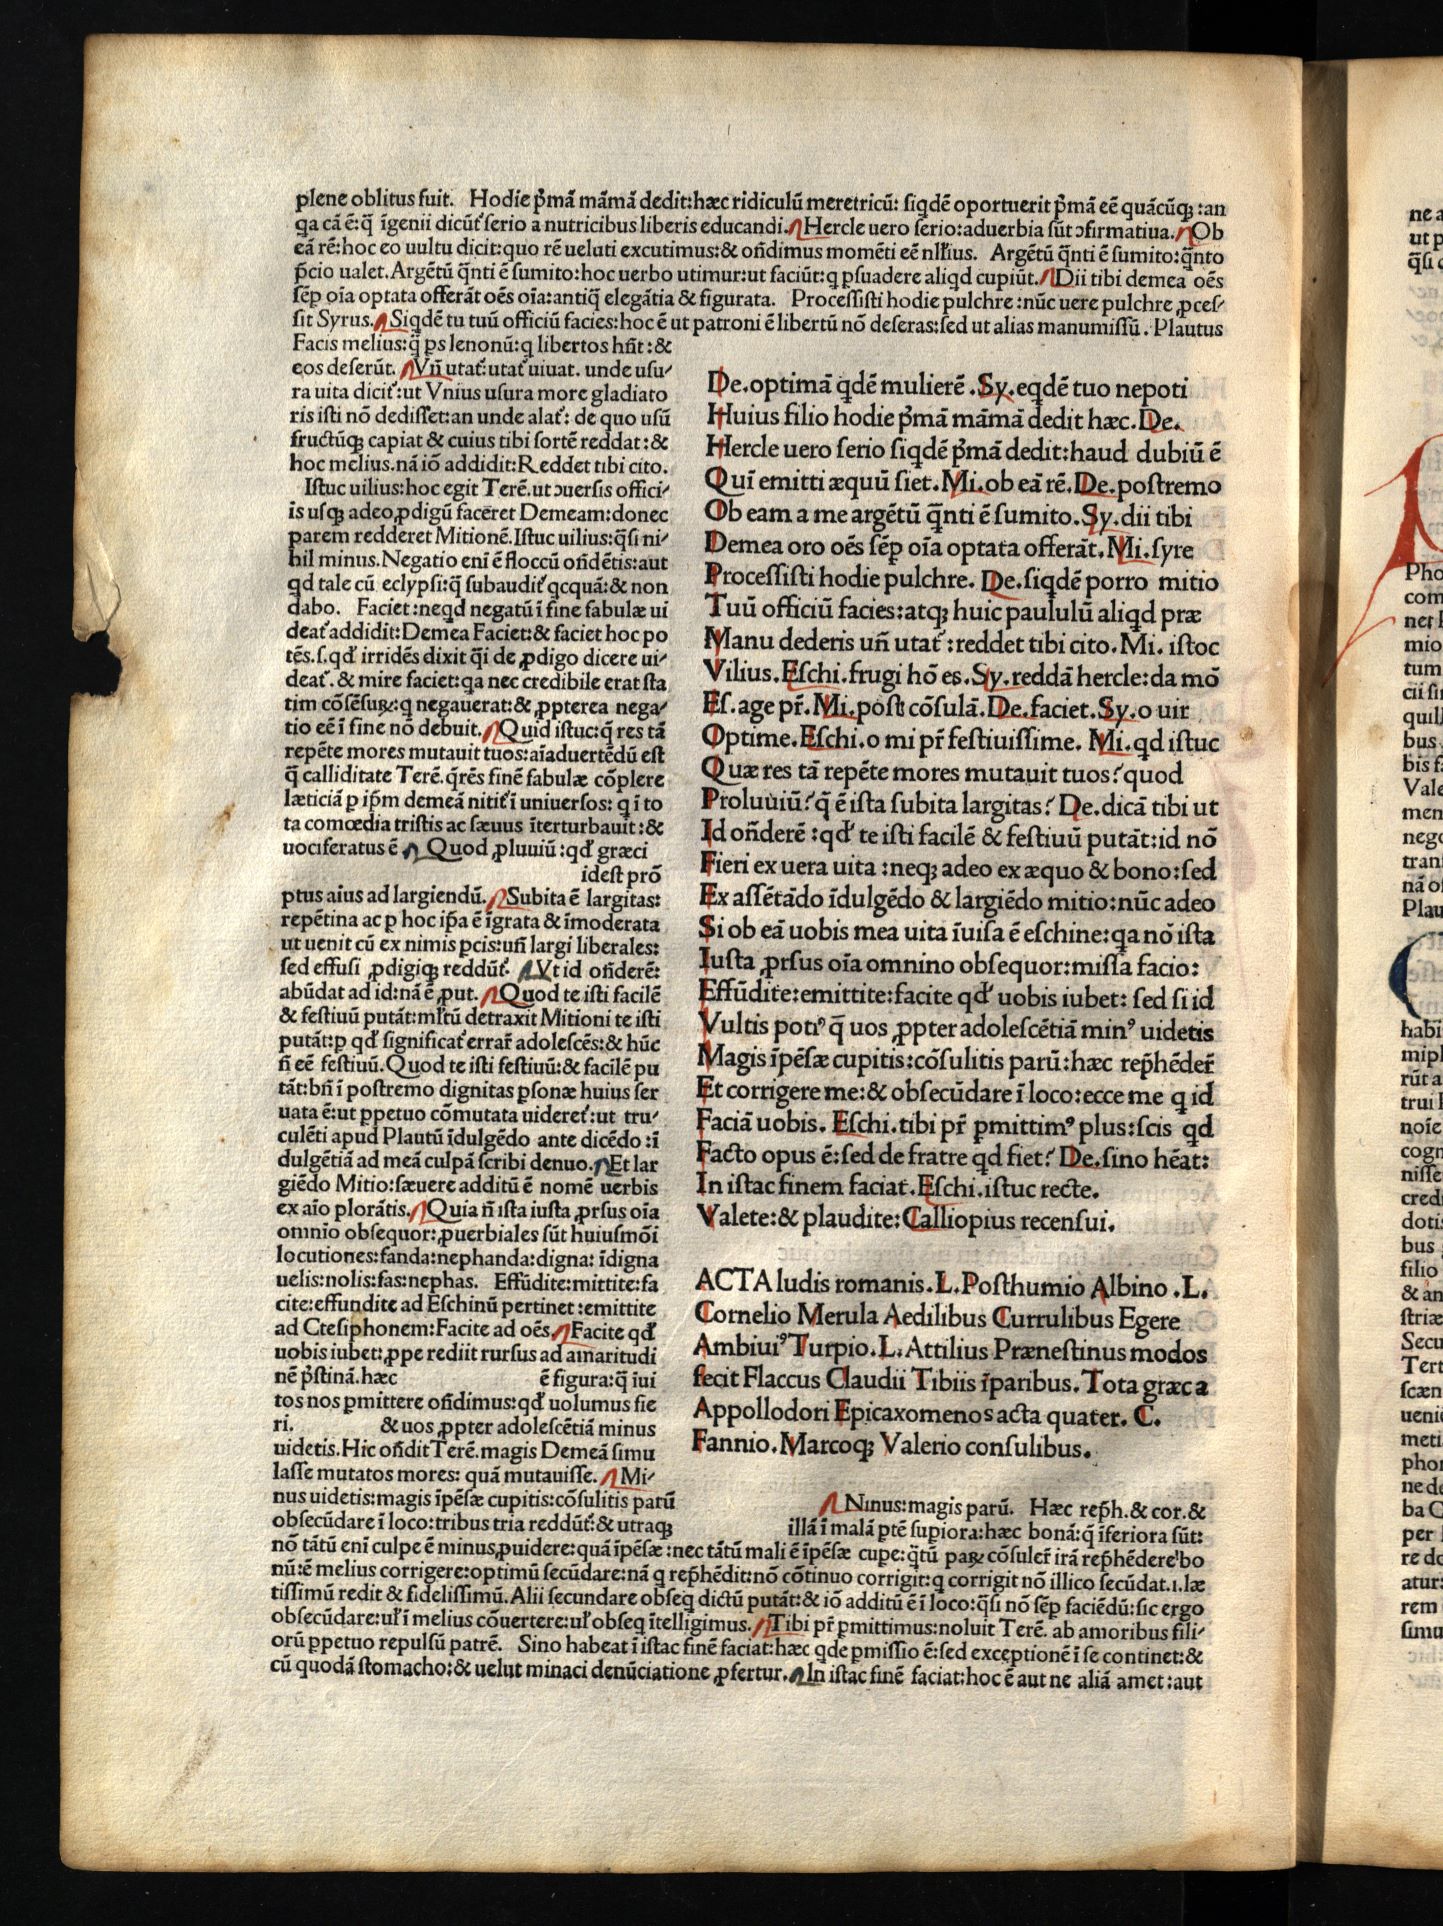 plene oblitus fuit. Hodie p̃mã mãmã dedit:hæc ridiculũ meretricũ: siqdẽ oportuerit p̃mã eẽ quãcũqꝫ :an
qa cã ẽ:q̃ ĩgenii dicũt̃ serio a nutricibus liberis educandi. Hercle uero serio:aduerbia sũt ɔfirmatiua. Ob
eã rẽ:hoc eo uultu dicit:quo rẽ ueluti excutimus:& oñdimus momẽti eẽ nłłius. Argẽtũ q̃nti ẽ sumito:q̃nto
p̃cio ualet.Argẽtũ q̃nti ẽ sumito:hoc uerbo utimur:ut faciũt:q ꝑsuadere aliqd cupiũt. Dii tibi demea oẽs
sẽꝑ oĩa optata offerãt oẽs oĩa:antiq̃ elegãtia & figurata. Processisti hodie pulchre :nũc uere pulchre ꝓces-
sit Syrus. Siqdẽ tu tuũ officiũ facies:hoc ẽ ut patroni ẽ libertũ nõ deseras:sed ut alias manumissũ. Plautus
Facis melius:q̃ ꝑs lenonũ:q libertos hñt:&
eos deserũt. Vñ utat̃: utat̃ uiuat. unde usu-
ra uita dicit̃:ut Vnius usura more gladiato
ris isti nõ dedisset:an unde alat̃: de quo usũ
fructũqꝫ capiat & cuius tibi sortẽ reddat:&
hoc melius.nã iõ addidit:Reddet tibi cito.
Istuc uilius:hoc egit Terẽ.ut ɔuersis offici-
is usqꝫ adeo ꝓdigũ facẽret Demeam:donec
parem redderet Mitionẽ.Istuc uilius:q̃si ni-
hil minus.Negatio enĩ ẽ floccũ oñdẽtis:aut
qd tale cũ eclypsi:q̃ subaudit̃ qcquã:& non
dabo. Faciet:neqd negatũ ĩ fine fabulæ ui
deat̃ addidit:Demea Faciet:& faciet hoc po
tẽs.s.qđ irridẽs dixit q̃i de ꝓdigo dicere ui-
deat̃. & mire faciet:qa nec credibile erat sta
tim cõsẽsuꝝ:q negauerat:& ꝓpterea nega-
tio eẽ ĩ fine nõ debuit. Quid istuc:q̃ res tã
repẽte mores mutauit tuos:aĩaduertẽdũ est
q̃ calliditate Terẽ.q̃rẽs finẽ fabulæ cõplere
lætitiã ꝑ ip̃m demeã nitit̃ ĩ uniuersos: q ĩ to
ta comœdia tristis ac sæuus ĩterturbauit:&
uociferatus ẽ Quod ꝓluuiũ :qđ græci
idest prõ
ptus aĩus ad largiendũ. Subita ẽ largitas:
repẽtina ac ꝑ hoc ip̃a ẽ ĩgrata & ĩmoderata
ut uenit cũ ex nimis ꝑcis:uñ largi liberales:
sed effusi ꝓdigiqꝫ reddũt̃. Vt id oñderẽ:
abũdat ad id:nã ẽ ꝓut. Quod te isti facilẽ
& festiuũ putãt:młtũ detraxit Mitioni te isti
putãt:ꝑ qđ significat̃ errar̃ adolescẽs:& hũc
ñ eẽ festiuũ.Quod te isti festiuũ:& facilẽ pu
tãt:bñ ĩ postremo dignitas ꝑsonæ huius ser
uata ẽ:ut ꝑpetuo cõmutata uideret̃:ut tru-
culẽti apud Plautũ ĩdulgẽdo ante dicẽdo :ĩ
dulgẽtiã ad meã culpã scribi denuo. Et lar
giẽdo Mitio:sæuere additũ ẽ nomẽ uerbis
ex aĩo plorãtis. Quia ñ ista iusta ꝓrsus oĩa
omnĩo obsequor:ꝓuerbiales sũt huiusmõi
locutiones:fanda:nephanda:digna: ĩdigna
uelis:nolis:fas:nephas. Effũdite:mittite:fa
cite:effundite ad Eschinũ pertinet:emittite
ad Ctesiphonem:Facite ad oẽs. Facite qđ
uobis iubet:ꝓpe rediit rursus ad amaritudi
nẽ p̃stinã.hæc ẽ figura:q̃ ĩui
tos nos ꝑmittere oñdimus:qđ uolumus fie
ri. & uos ꝓpter adolescẽtiã minus
uidetis.Hic oñdit Terẽ.magis Demeã simu
lasse mutatos mores: quã mutauisse. Mi-
nus uidetis:magis ĩpẽsæ cupitis:cõsulitis parũ
obsecũdare ĩ loco:tribus tria reddũt̃:& utraqꝫ
De.optimã qdẽ mulierẽ.Sy.eqdẽ tuo nepoti
Huius filio hodie p̃mã mãmã dedit hæc.De.
Hercle uero serio siqdẽ p̃mã dedit:haud dubiũ ẽ
Quĩ emitti æquũ siet.Mi.ob eã rẽ.De.postremo
Ob eam a me argẽtũ q̃nti ẽ sumito.Sy.dii tibi
Demea oro oẽs sẽꝑ oĩa optata offerãt.Mi.syre
Processisti hodie pulchre. De.siqdẽ porro mitio
Tuũ officiũ facies:atqꝫ huic paululũ aliqd præ
Manu dederis uñ utat̃:reddet tibi cito.Mi. istoc
Vilius.Eschi.frugi hõ es.Sy.reddã hercle:da mõ
Es.age pr̃.Mi.post cõsulã.De.faciet.Sy.o uir
Optime.Eschi.o mi pr̃ festiuissime. Mi.qd istuc
Quæ res tã repẽte mores mutauit tuos?quod
Proluuiũ?q̃ ẽ ista subita largitas? De.dicã tibi ut
Id oñderẽ :qđ te isti facilẽ & festiuũ putãt:id nõ
Fieri ex uera uita :neqꝫ adeo ex æquo & bono:sed
Ex assẽtãdo ĩdulgẽdo & largiẽdo mitio:nũc adeo
Si ob eã uobis mea uita ĩuisa ẽ eschine:qa nõ ista
Iusta ꝓrsus oĩa omnino obsequor:missa facio:
Effũdite:emittite:facite qđ uobis iubet: sed si id
Vultis potiꝰ q̃ uos ꝓpter adolescẽtiã minꝰ uidetis
Magis ĩpẽsæ cupitis:cõsulitis parũ:hæc rep̃hẽder̃
Et corrigere me:& obsecũdare ĩ loco:ecce me q id
Faciã uobis. Eschi.tibi pr̃ ꝑmittimꝰ plus:scis qd
Facto opus ẽ:sed de fratre qd fiet? De.sino hẽat:
In istac finem faciat.Eschi.istuc recte.
Valete:& plaudite:Calliopius recensui.
ACTA ludis romanis.L.Posthumio Albino .L.
Cornelio Merula Aedilibus Currulibus Egere
Ambiuiꝰ Turpio.L.Attilius Prænestinus modos
fecit Flaccus Claudii Tibiis ĩparibus.Tota græca
Appollodori Epicaxomenos acta quater. C.
Fannio.Marcoqꝫ Valerio consulibus.
Ninus:magis parũ. Hæc rep̃h.& cor.&
illã ĩ malã ꝑtẽ suꝑiora:hæc bonã:q̃ ĩferiora sũt:
nõ tãtũ enĩ culpe ẽ minus ꝓuidere:quã ĩpẽsæ :nec tãtũ mali ẽ ĩpẽsæ cupe:q̃tũ paꝝ cõsuler̃ irã rep̃hẽdere'bo
nũ:ẽ melius corrigere:optimũ secũdare:nã q rep̃hẽdit:nõ cõtinuo corrigit:q corrigit nõ illico secũdat.ı.læ
tissimũ redit & fidelissimũ.Alii secundare obseq dictũ putãt:& iõ additũ ẽ ĩ loco:q̃si nõ sẽꝑ faciẽdũ:sic ergo
obsecũdare:uł ĩ melius cõuertere:uł obseq ĩtelligimus. Tibi pr̃ ꝑmittimus:noluit Terẽ. ab amoribus fili-
orũ ꝑpetuo repulsũ patrẽ. Sino habeat ĩ istac finẽ faciat:hæc qde ꝑmissio ẽ:sed exceptionẽ ĩ se continet:&
cũ quodã stomacho:& uelut minaci denũciatione ꝓfertur. In istac finẽ faciat:hoc ẽ aut ne aliã amet:aut